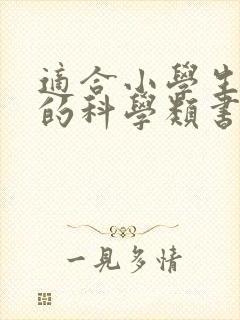 適合小學生
的科學類書
一見多情